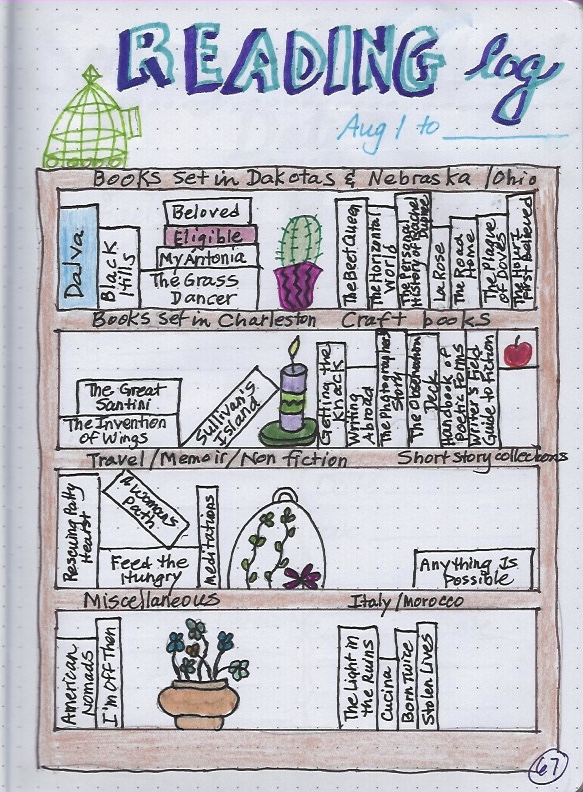 READING log
Aug 1 to
Books set in Dakotas & Nebraska / Ohio
Dalva
Black
Hills
Beloved
Eligible
My Antonia
The Grass
Dancer
The Beet Queen
The Horizontal
World
The Personal
History of Rachel
Dupree
La Rose
The Road
Home
The Plague
of Doves
The Hour I
First Believed
Books set in Charleston Craft books
The Great
Santini
The Invention
of Wings
Sullivan's
Island
Getting the
Knack
Writing
Abroad
The Photographer's
Story
The Observation
Deck
Handbook of
Poetic Forms
Writer's Field
Guide to Fiction
Travel / Memoir / Non fiction Short story collections
Rescuing Patty
Hearst
A Woman's
Path
Feed the
Hungry
Meditations
Anything Is
Possible
Miscellaneous Italy / Morocco
American
Nomads
I'm Off Then
The Light in
the Ruins
Cucina
Born Twice
Stolen Lives
67